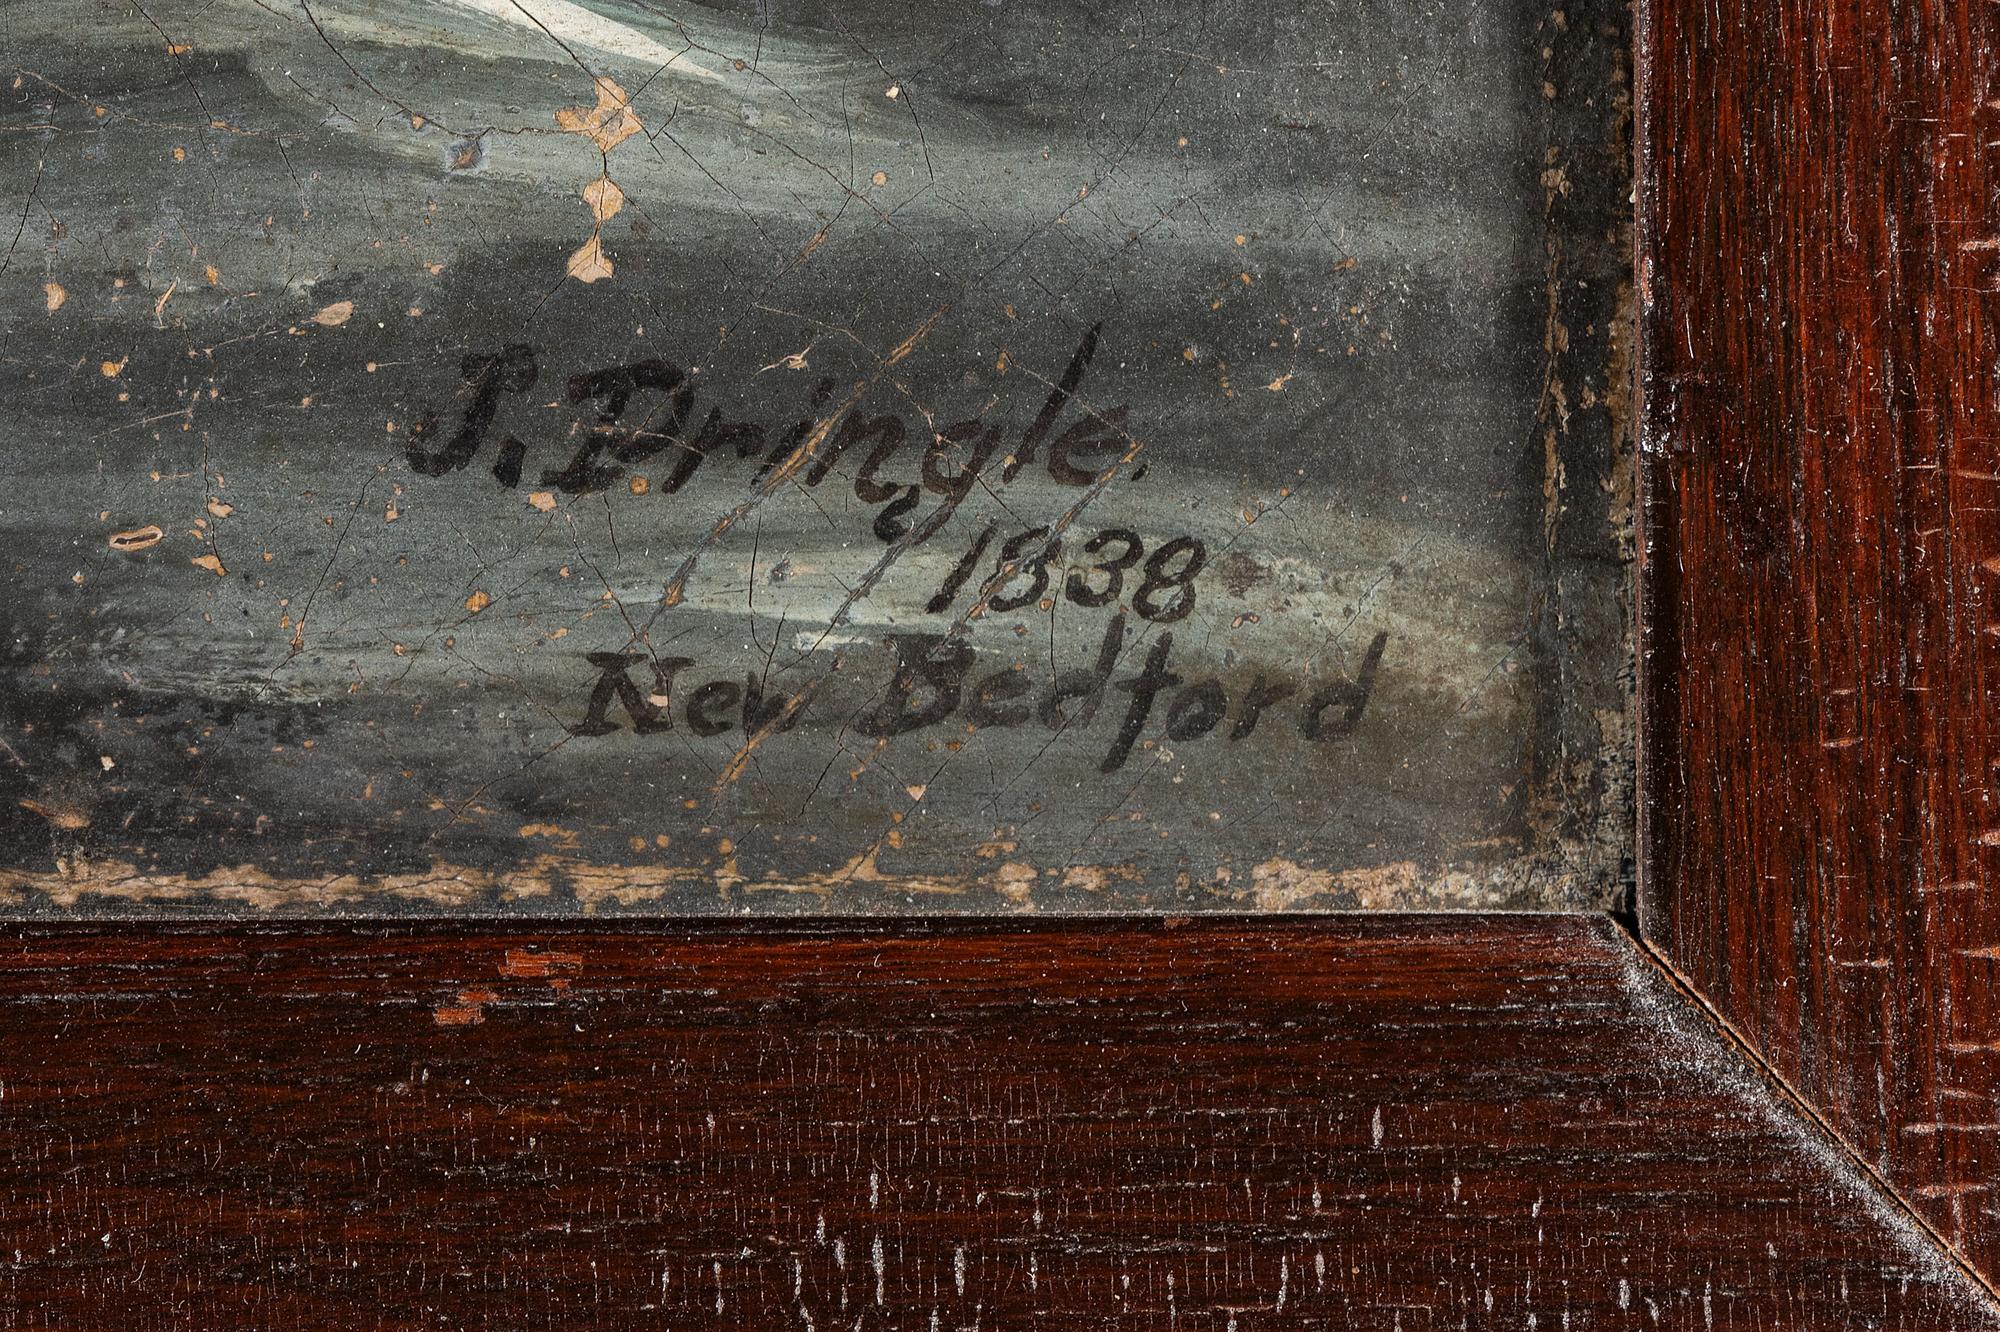 J. Pringle.
1838
New Bedford